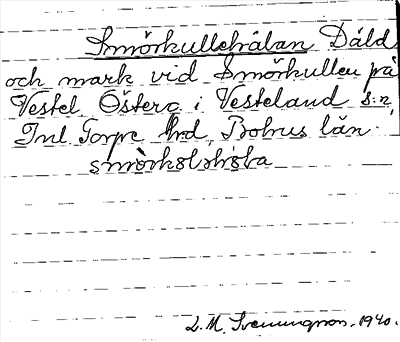 Smörkullehålan Däld
och mark vid Smörkullen på
Vestel Österg i Vesteland s:n,
Inl Torpe hrd, Bohus län
smörkolshòla
L. M. Svenungson. 1940.